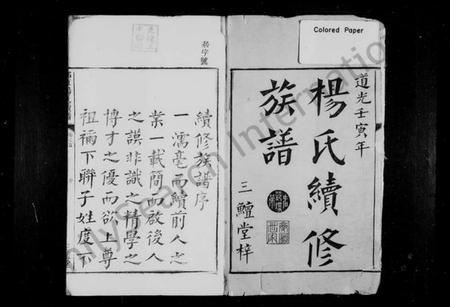 Colored Paper
道光壬寅年
楊氏續修
族譜
三鱣堂梓
續修族譜序
一濡毫而續前人之
業一載簡而啟後人
之誤非識之精學之
博才之優而欲上尊
祖禰下聯子姓度不